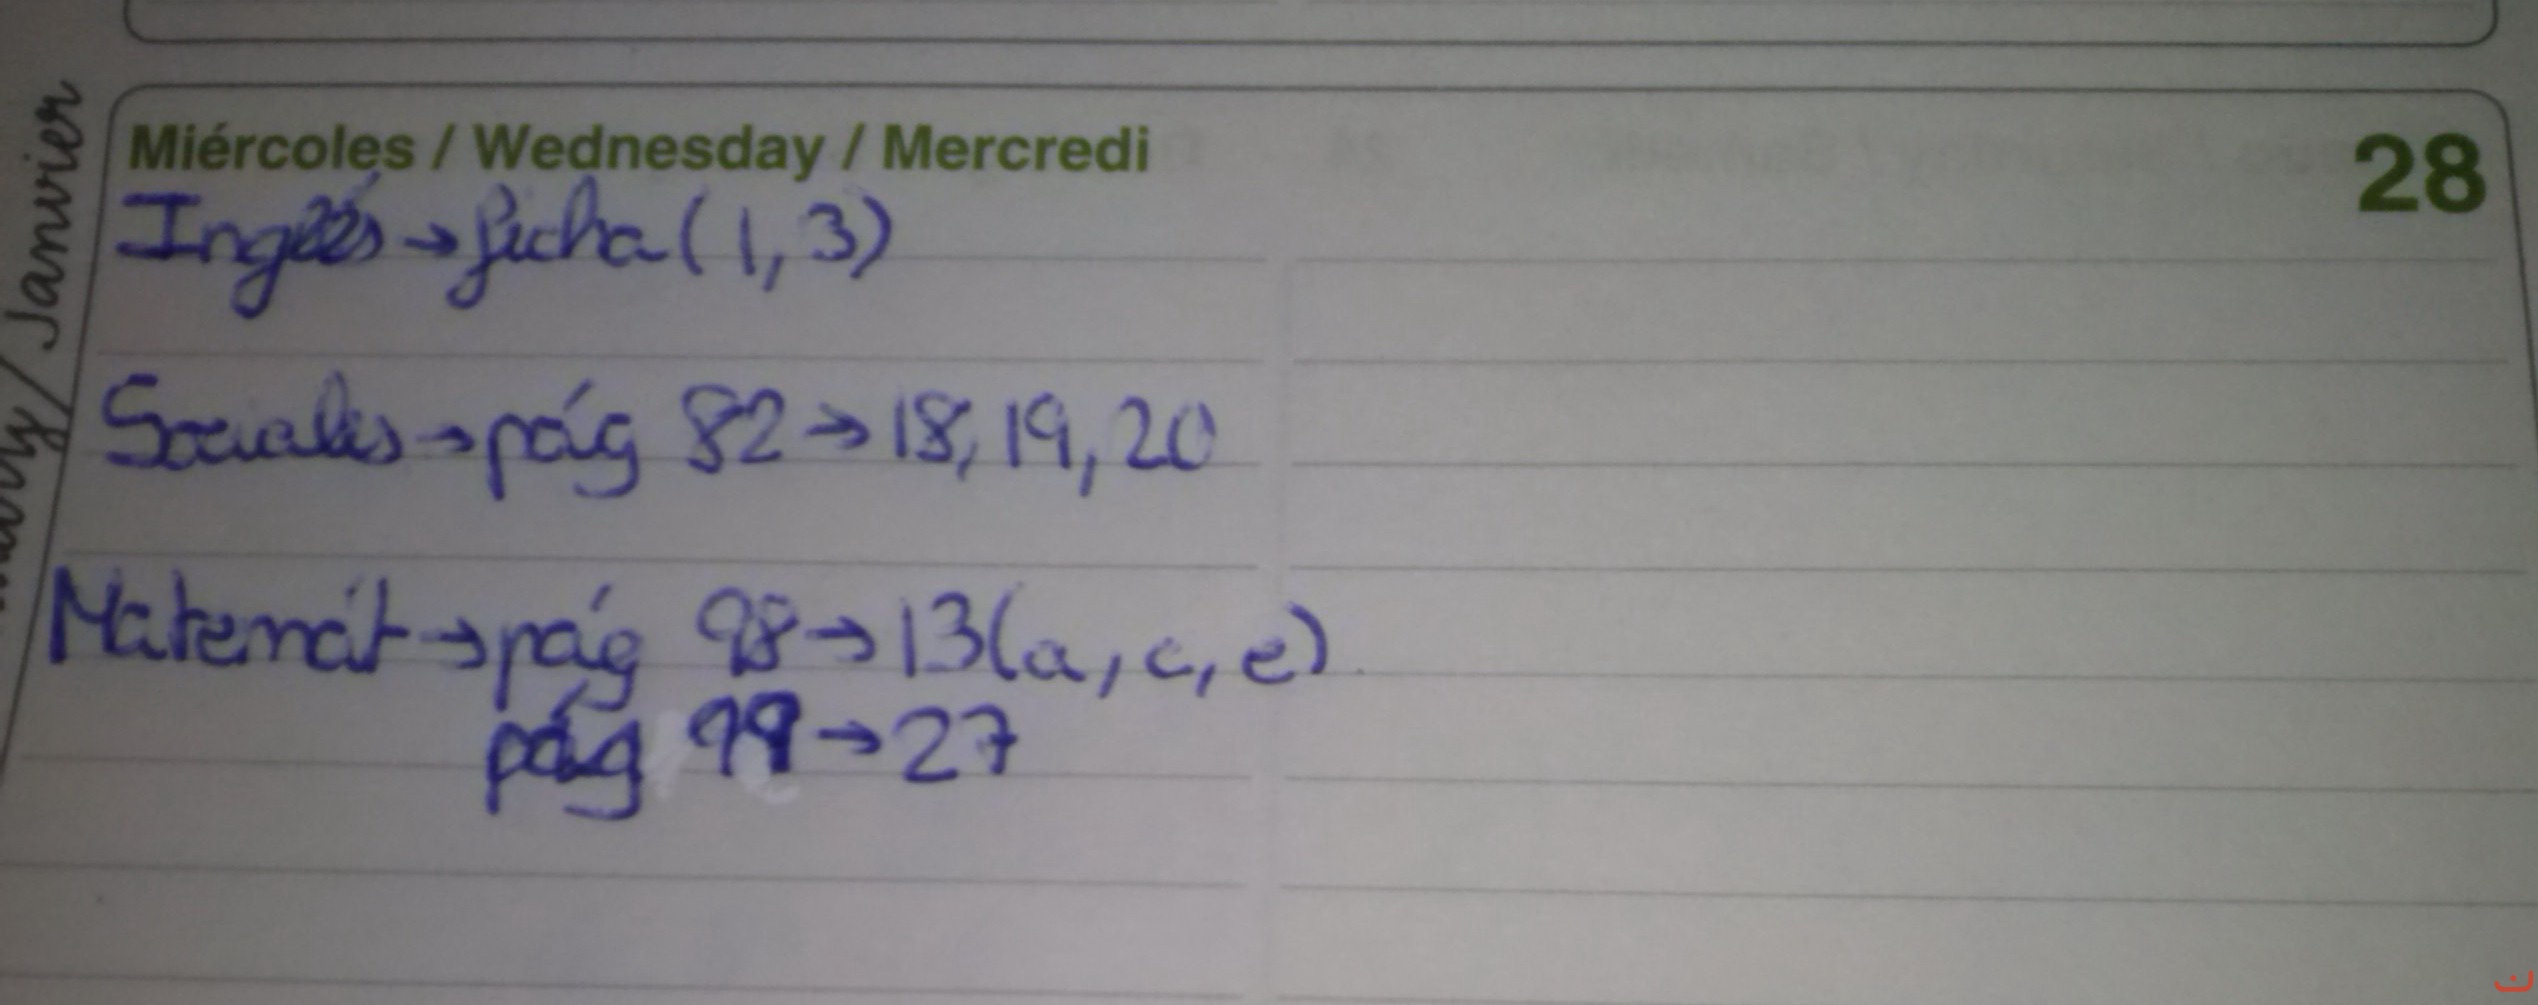 Miércoles / Wednesday / Mercredi 28
Inglés → ficha (1, 3)
Sociales → pág 82 → 18, 19, 20
Matemát → pág 98 → 13 (a, c, e)
pág 99 → 27
/ Janvier